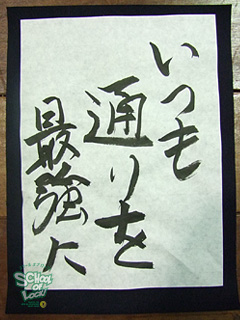 いつも
通りを
最強に
SCHOOL
OF
LOCK!